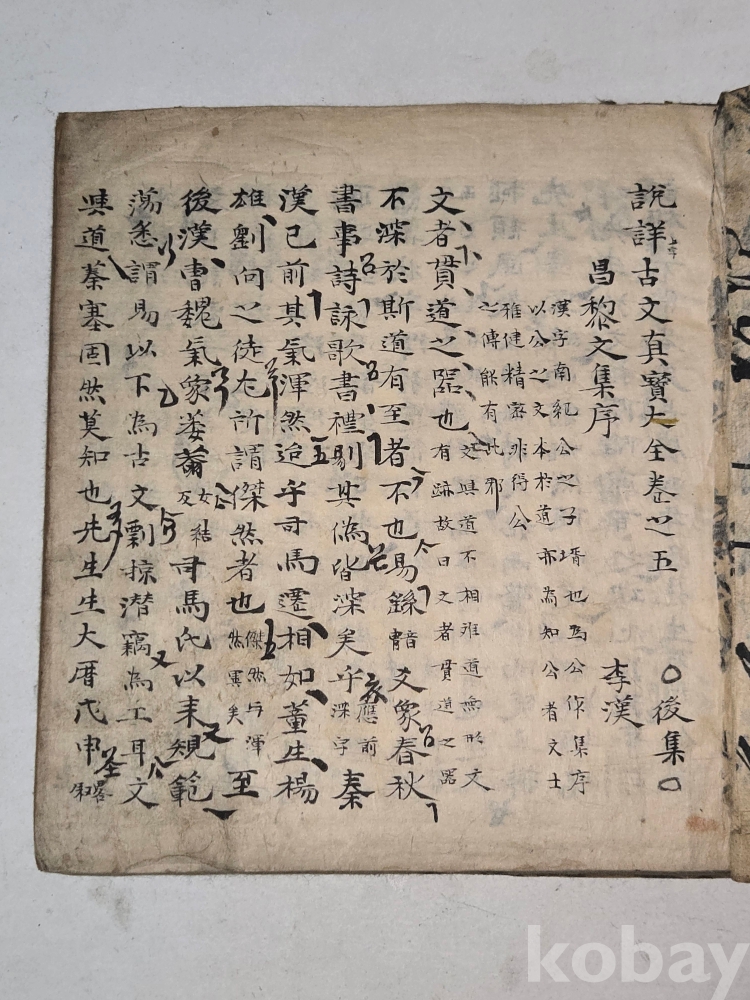 說詳古文真寶大全卷之五 〇後集〇
昌黎文集序 李漢
漢字南紀公之子壻也為公作集序
以公之文本於道亦為知公者文士
雅健精密非得公
之傳能有此邪
文者貫道之器也 文與道不相离道無形文
有跡故曰文者貫道之器
不深於斯道有至者不也易繇 音冑 爻象春秋
書事詩詠歌書禮剔其偽皆深矣乎 應前深字 秦
漢已前其氣渾然迨乎司馬遷相如董生楊
雄劉向之徒尤所謂傑然者也 傑然与渾然異矣 至
後漢曹魏氣象萎薾 女結反 司馬氏以来規範
蕩悉謂易以下為古文剽掠潜竊為工耳文
與道蓁塞固然莫知也先生生大曆戊申
kobay